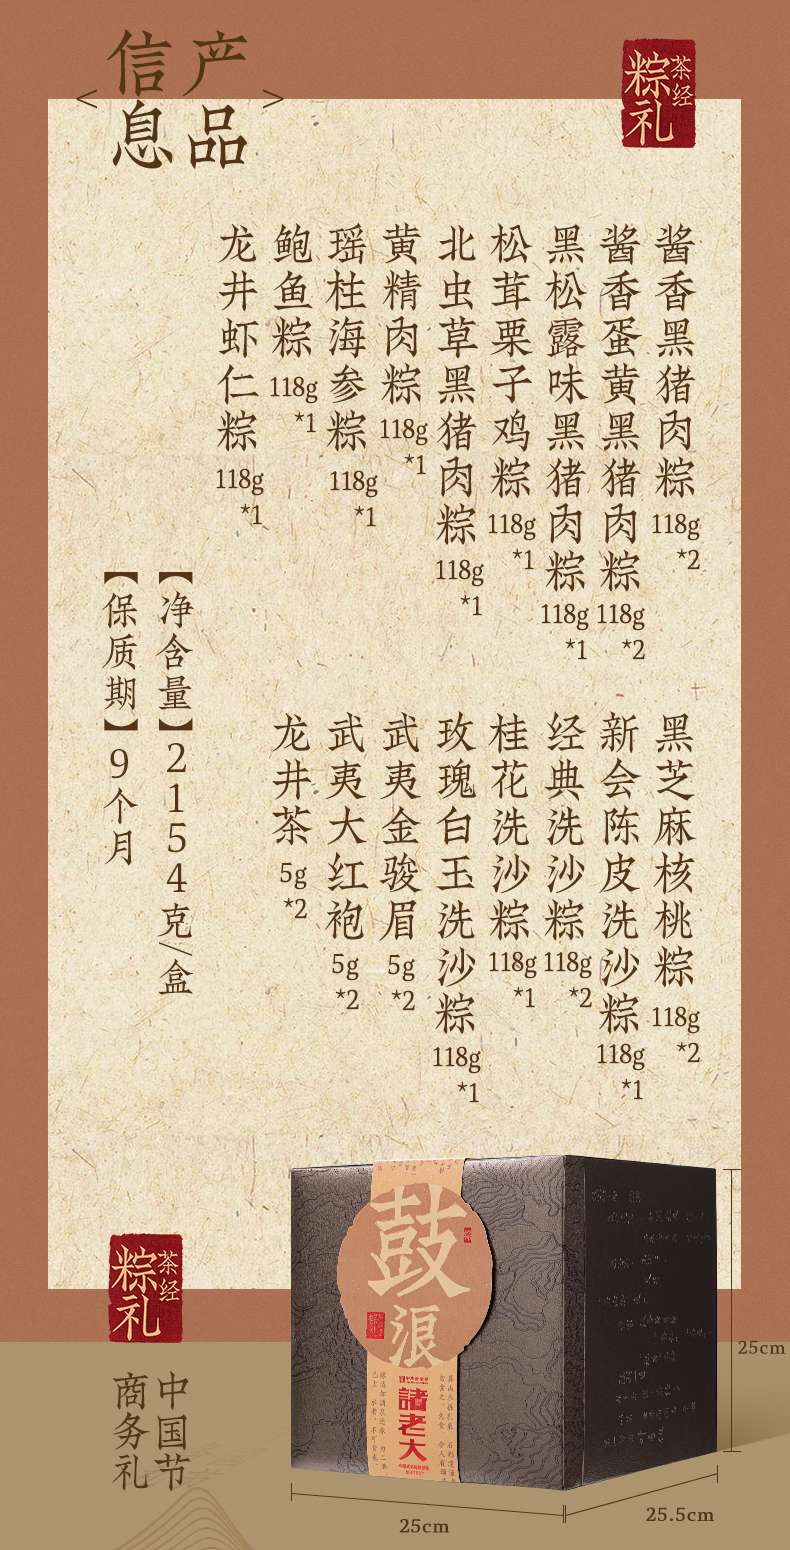 产品
信息
茶经
粽礼
酱香黑猪肉粽118g*2
酱香蛋黄黑猪肉粽118g*2
黑松露味黑猪肉粽118g*1
松茸栗子鸡粽118g*1
北虫草黑猪肉粽118g*1
黄精肉粽118g*1
瑶柱海参粽118g*1
鲍鱼粽118g*1
龙井虾仁粽118g*1
黑芝麻核桃粽118g*2
新会陈皮洗沙粽118g*1
经典洗沙粽118g*2
桂花洗沙粽118g*1
玫瑰白玉洗沙粽118g*1
武夷金骏眉5g*2
武夷大红袍5g*2
龙井茶5g*2
【净含量】2154克/盒
【保质期】9个月
茶经
粽礼
中国节
商务礼
鼓浪
諸老大
25cm
25cm
25.5cm